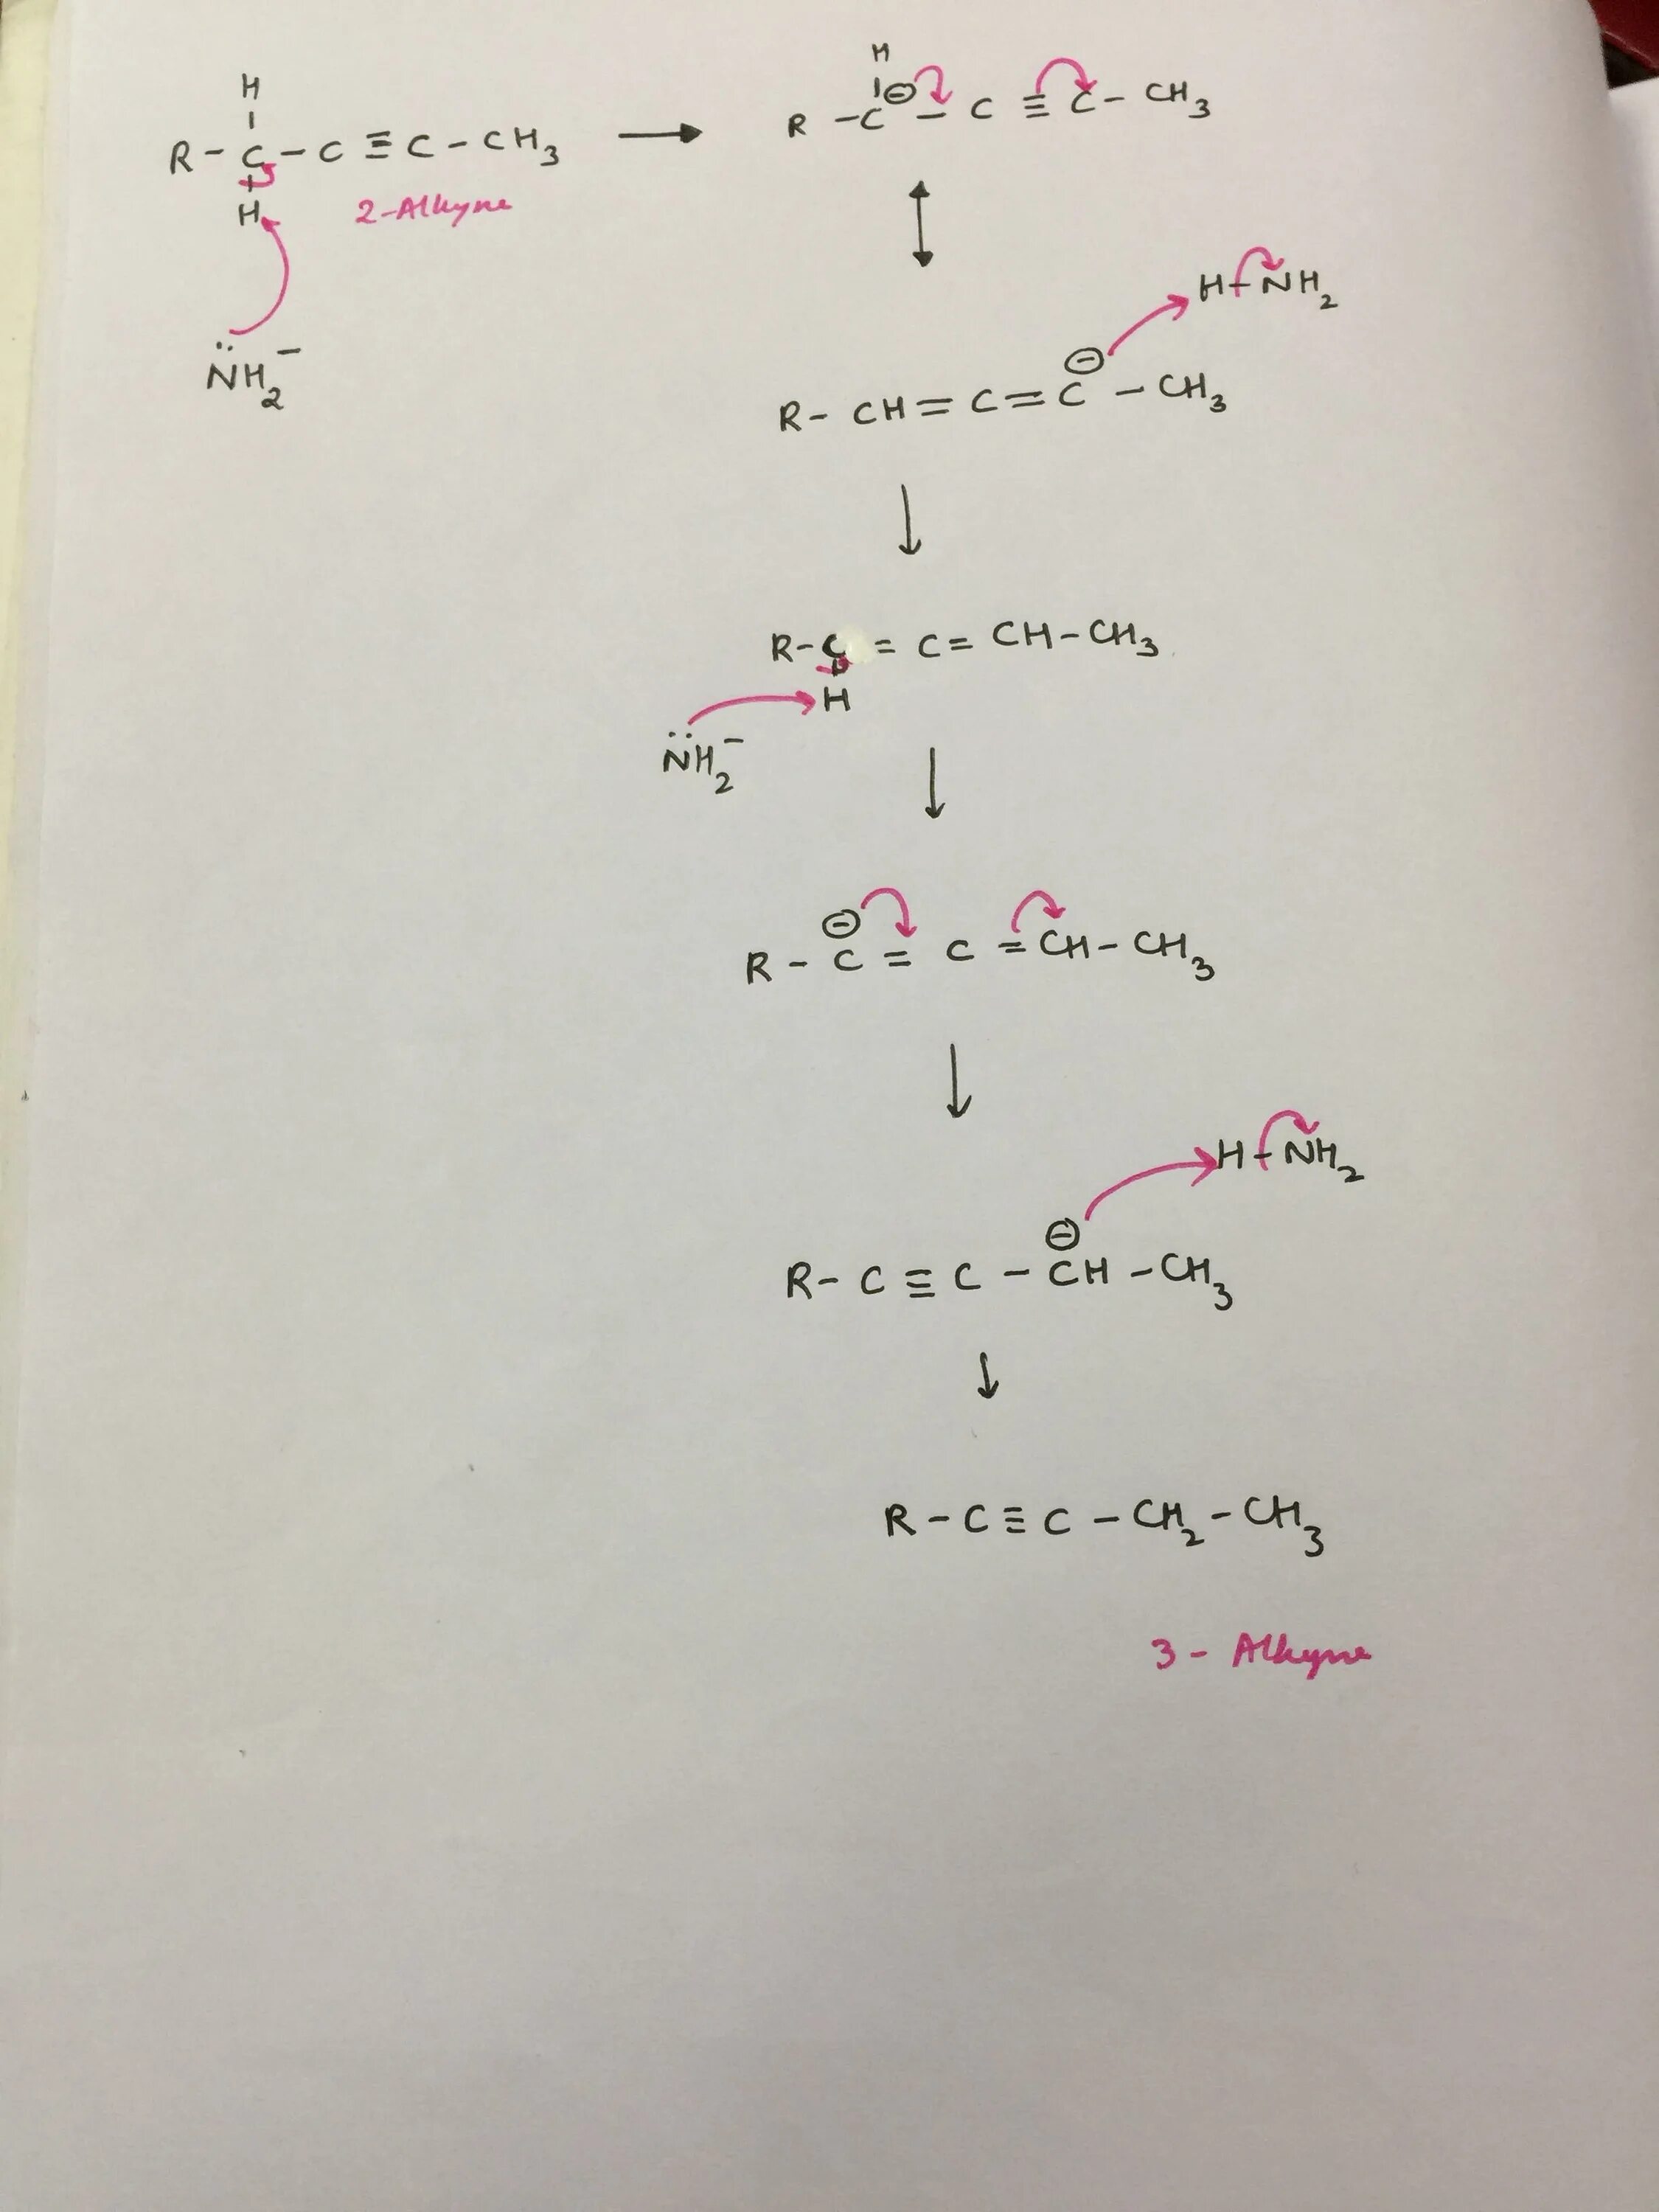 H
R - C - C ≡ C - CH₃
H
2-Alkyne
N̈H₂⁻
H
R - C⊖ - C ≡ C - CH₃
H - NH₂
⊖
R - CH = C = C - CH₃
R - C = C = CH - CH₃
H
N̈H₂⁻
⊖
R - C = C = CH - CH₃
H - NH₂
⊖
R - C ≡ C - CH - CH₃
R - C ≡ C - CH₂ - CH₃
3 - Alkyne